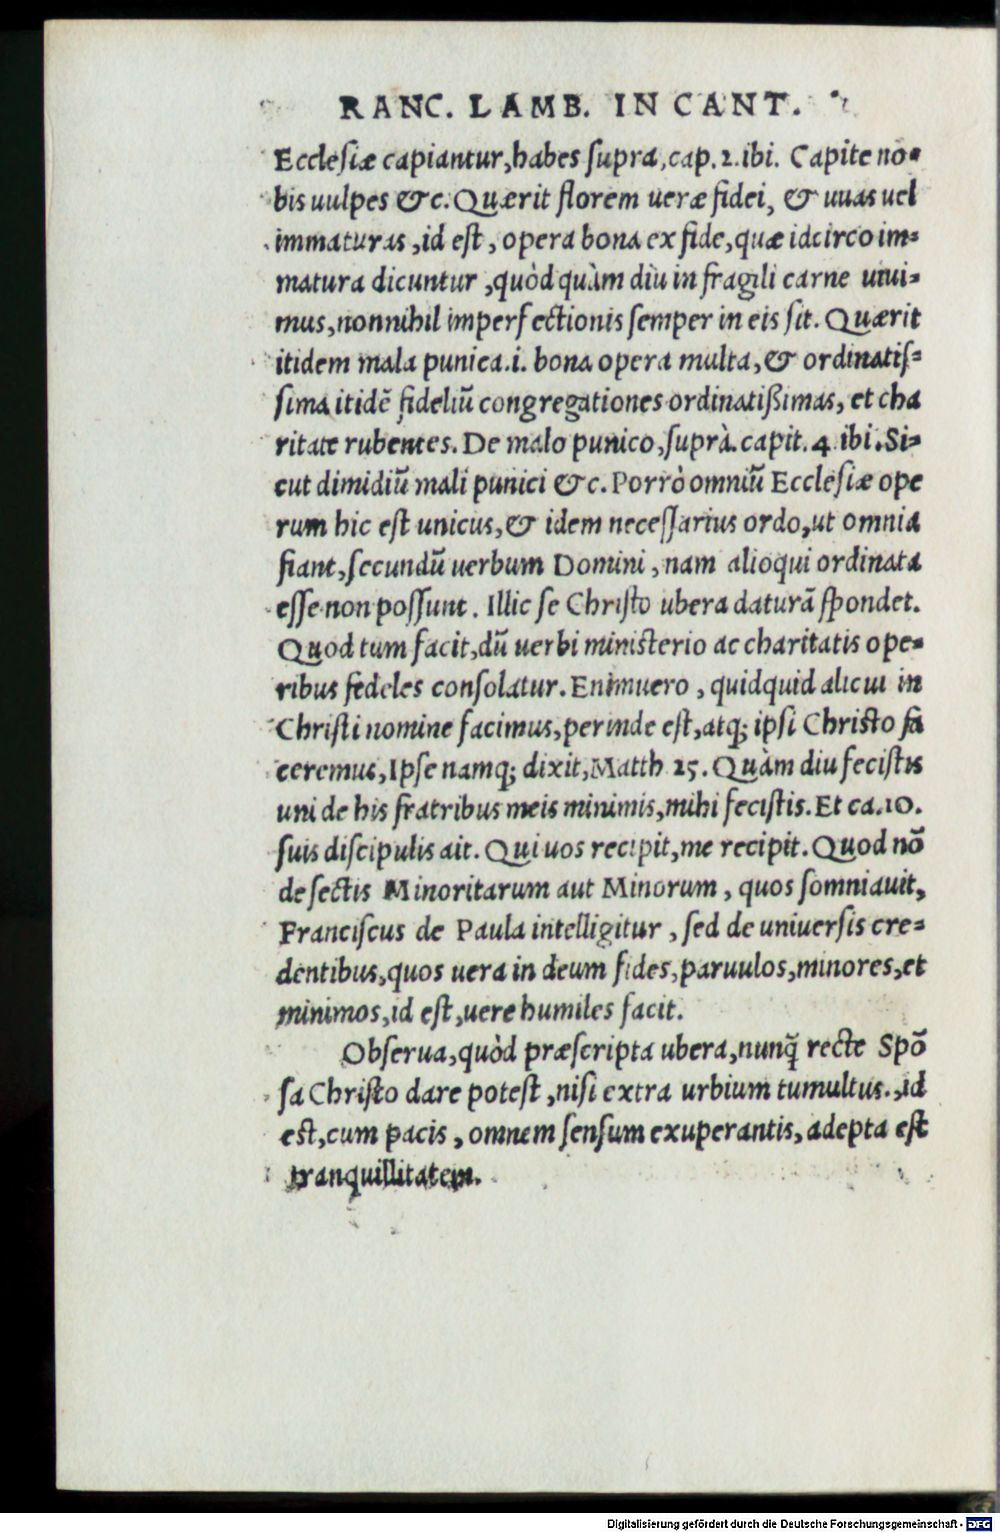 RANC. LAMB. IN CANT.
Ecclesiæ capiantur, habes supra, cap. 2. ibi. Capite no-
bis uulpes &c. Quærit florem ueræ fidei, & uuas uel
immaturas, id est, opera bona ex fide, quæ idcirco im-
matura dicuntur, quòd quàm diu in fragili carne uiui-
mus, nonnihil imperfectionis semper in eis sit. Quærit
itidem mala punica .i. bona opera multa, & ordinatis-
sima itidẽ fideliũ congregationes ordinatißimas, et cha
ritate rubentes. De malo punico, suprà. capit. 4. ibi. Si-
cut dimidiũ mali punici &c. Porrò omniũ Ecclesiæ ope
rum hic est unicus, & idem necessarius ordo, ut omnia
fiant, secundũ uerbum Domini, nam alioqui ordinata
esse non possunt. Illic se Christo ubera daturã spondet.
Quod tum facit, dũ uerbi ministerio ac charitatis ope-
ribus fideles consolatur. Enimuero, quidquid alicui in
Christi nomine facimus, perinde est, atq; ipsi Christo fa
ceremus, Ipse namq; dixit, Matth 25. Quàm diu fecistis
uni de his fratribus meis minimis, mihi fecistis. Et ca. 10.
suis discipulis ait. Qui uos recipit, me recipit. Quod nõ
de sectis Minoritarum aut Minorum, quos somniauit,
Franciscus de Paula intelligitur, sed de uniuersis cre-
dentibus, quos uera in deum fides, paruulos, minores, et
minimos, id est, uere humiles facit.
Obserua, quòd præscripta ubera, nunq̃ recte Spõ
sa Christo dare potest, nisi extra urbium tumultus., id
est, cum pacis, omnem sensum exuperantis, adepta est
tranquillitatem.
Digitalisierung gefördert durch die Deutsche Forschungsgemeinschaft - DFG